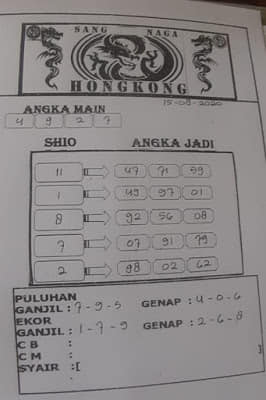 SANG NAGA
HONGKONG
15-08-2020
ANGKA MAIN
4 9 2 7
SHIO ANGKA JADI
11 47 71 59
1 49 97 01
8 92 56 08
7 07 91 79
2 98 02 62
PULUHAN
GANJIL : 7-9-5 GENAP : 4-0-6
EKOR
GANJIL : 1-7-9 GENAP : 2-6-8
C B :
C M :
SYAIR :[ ]